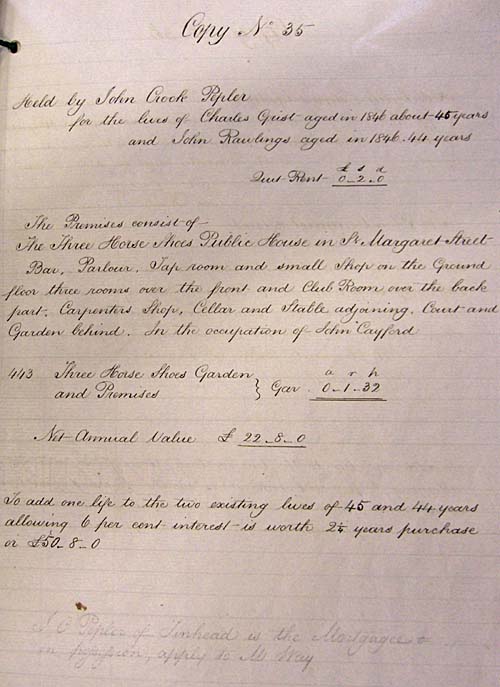 Copy No 35
Held by John Crook Pepler
for the lives of Charles Grist aged in 1846 about 45 years
and John Rawlings aged in 1846. 44 years
£ s d
Quit Rent 0_2_0
The Premises consist of
The Three Horse Shoes Public House in St Margaret Street
Bar, Parlour, Tap room and small Shop on the Ground
floor three rooms over the front and Club Room over the back
part, Carpenters Shop, Cellar and Stable adjoining, Court and
Garden behind. In the occupation of John Cayford
a r p
443 Three Horse Shoes Garden } Gar. 0_1_32
and Premises
Net Annual Value £ 22_8_0
To add one life to the two existing lives of 45 and 44 years
allowing 6 per cent interest is worth 2¼ years purchase
or £50_8_0
J C Pepler of Tinhead is the Mortgagee
in possession, apply to Mr Way